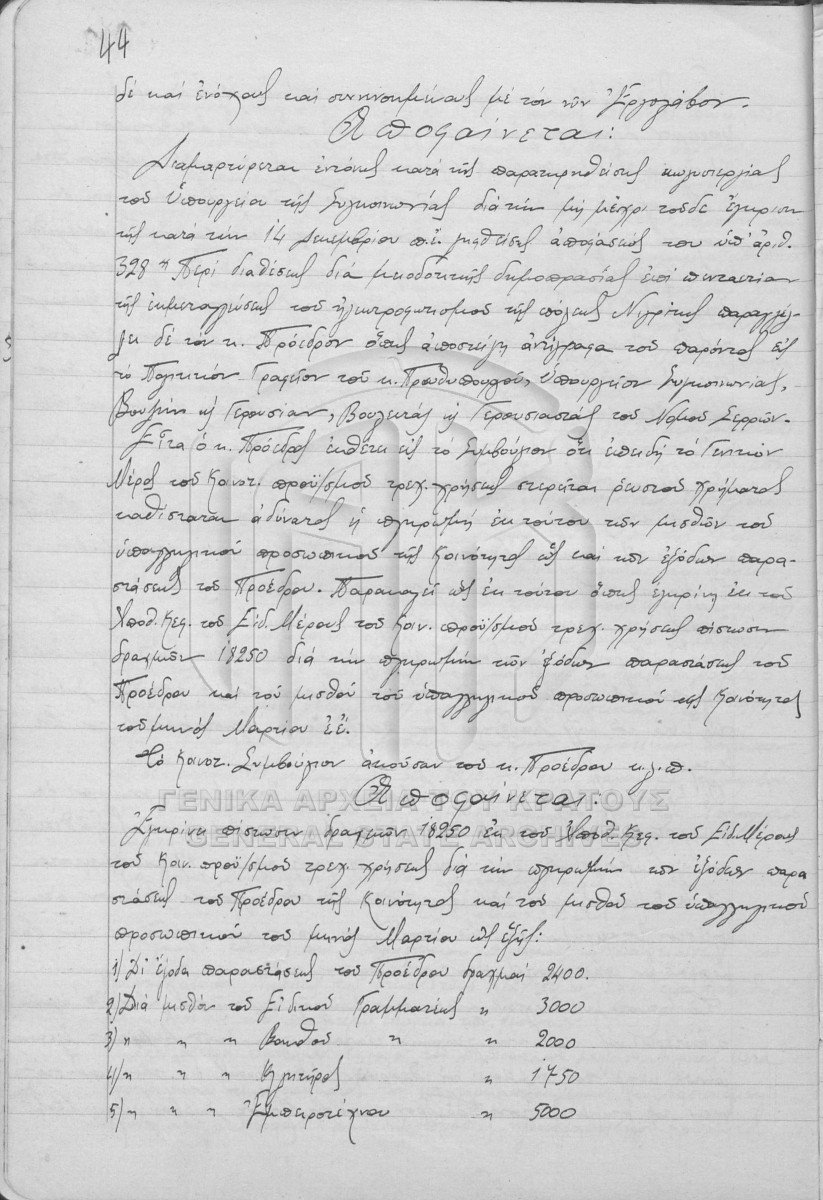 44
δέ καί ἐνόχους καί συνενουμένους μέ τόν νῦν Ἐργολάβον.
Ἀποφαίνεται:
Διαμαρτύρεται ἐντόνως κατά τῆς παρατηρηθείσης κωλυσιεργίας
τοῦ Ὑπουργείου τῆς Συγκοινωνίας διά τήν μή μέχρι τοῦδε ἔγκρισιν
τῆς κατά τήν 14 Δεκεμβρίου π.ἔ. ληφθείσης ἀποφάσεώς του ὑπ' ἀριθ.
328 "Περί διαθέσεως διά μειοδοτικῆς δημοπρασίας ἐπί πενταετίαν
τῆς ἐκμεταλλεύσεως τοῦ ἠλεκτροφωτισμοῦ τῆς πόλεως Νιγρίτης παραγγέλ-
λει δέ τόν κ. Πρόεδρον ὅπως ἀποστείλῃ ἀντίγραφα τοῦ παρόντος εἰς
τό Πολιτικόν Γραφεῖον τοῦ κ. Πρωθυπουργοῦ, Ὑπουργεῖον Συγκοινωνίας,
Βουλήν κ Γερουσίαν, Βουλευτάς κ Γερουσιαστάς τοῦ Νομοῦ Σερρῶν.
Εἶτα ὁ κ. Πρόεδρος ἐκθέτει εἰς τό Συμβούλιον ὅτι ἐπειδή τό Γενικόν
Μέρος τοῦ Κοινοτ. προϋ/σμοῦ τρεχ. χρήσεως στερεῖται ρευστοῦ χρήματος
καθίσταται ἀδύνατος ἡ πληρωμή ἐκ τούτου τῶν μισθῶν τοῦ
ὑπαλληλικοῦ προσωπικοῦ τῆς Κοινότητος ὡς καί τῶν ἐξόδων παρα-
στάσεως τοῦ Προέδρου. Παρακαλεῖ ὡς ἐκ τούτου ὅπως ἐγκρίνῃ ἐκ τοῦ
Ἀποθ. Κεφ. τοῦ Εἰδ. Μέρους τοῦ Κοιν. προϋ/σμοῦ τρεχ. χρήσεως πίστωσιν
δραχμῶν 18250 διά τήν πληρωμήν τῶν ἐξόδων παραστάσεως τοῦ
Προέδρου καί τοῦ μισθοῦ τοῦ ὑπαλληλικοῦ προσωπικοῦ τῆς Κοινότητος
τοῦ μηνός Μαρτίου ἔ.ἔ.
Τό Κοινοτ. Συμβούλιον ἀκοῦσαν τοῦ κ. Προέδρου κ.λ.π.
Ἀποφαίνεται:
ΓΕΝΙΚΑ ΑΡΧΕΙΑ ΤΟΥ ΚΡΑΤΟΥΣ
Ἐγκρίνει πίστωσιν δραχμῶν 18250 ἐκ τοῦ Ἀποθ. Κεφ. τοῦ Εἰδ. Μέρους
GENERAL STATE ARCHIVES
τοῦ Κοιν. προϋ/σμοῦ τρεχ. χρήσεως διά τήν πληρωμήν τῶν ἐξόδων παρα
στάσεως τοῦ Προέδρου τῆς Κοινότητος καί τοῦ μισθοῦ τοῦ ὑπαλληλικοῦ
προσωπικοῦ τοῦ μηνός Μαρτίου ὡς ἑξῆς:
1) Δι' ἔξοδα παραστάσεως τοῦ Προέδρου δραχμαί 2400.
2) Διά μισθόν τοῦ Εἰδικοῦ Γραμματέως " 3000
3) " " " Βοηθοῦ " " 2000
4) " " " Κλητῆρος " 1750
5) " " " Ἐμπειροτέχνου " 5000